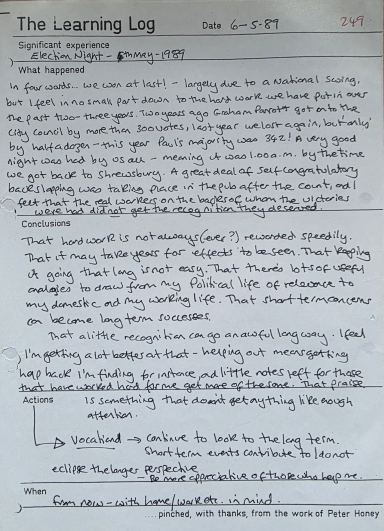 The Learning Log Date 6-5-89 249
Significant experience
Election Night - 5th May - 1989
What happened
In four words... we won at last! - largely due to a National Swing,
but I feel in no small part down to the hard work we have put in over
the past two-three years. Two years ago Graham Parrott got on to the
City Council by more than 300 votes, last year we lost again, but 'only'
by half a dozen - this year Paul's majority was 342! A very good
night was had by us all - meaning it was 1.00 a.m. by the time
we got back to Shrewsbury. A great deal of self congratulatory
backslapping was taking place in the pub after the count, and I
felt that the real workers on the backs of whom the victories
were had did not get the recognition they deserved.
Conclusions
That hard work is not always (ever?) rewarded speedily.
That it may take years for effects to be seen. That keeping
it going that long is not easy. That there's lots of useful
analogies to draw from my Political life of relevance to
my domestic and my working life. That short term concerns
can become long term successes.
That a little recognition can go an awful long way. I feel
I'm getting a lot better at that - helping out means getting
help back I'm finding for instance, and little notes left for those
that have worked hard for me get more of the same. That praise
Actions is something that doesn't get anything like enough
attention.
→ continue to look to the long term.
Short term events contribute to / do not
eclipse the larger perspective
- Be more appreciative of those who help me.
When
from now - with home/work etc. in mind.
....pinched, with thanks, from the work of Peter Honey